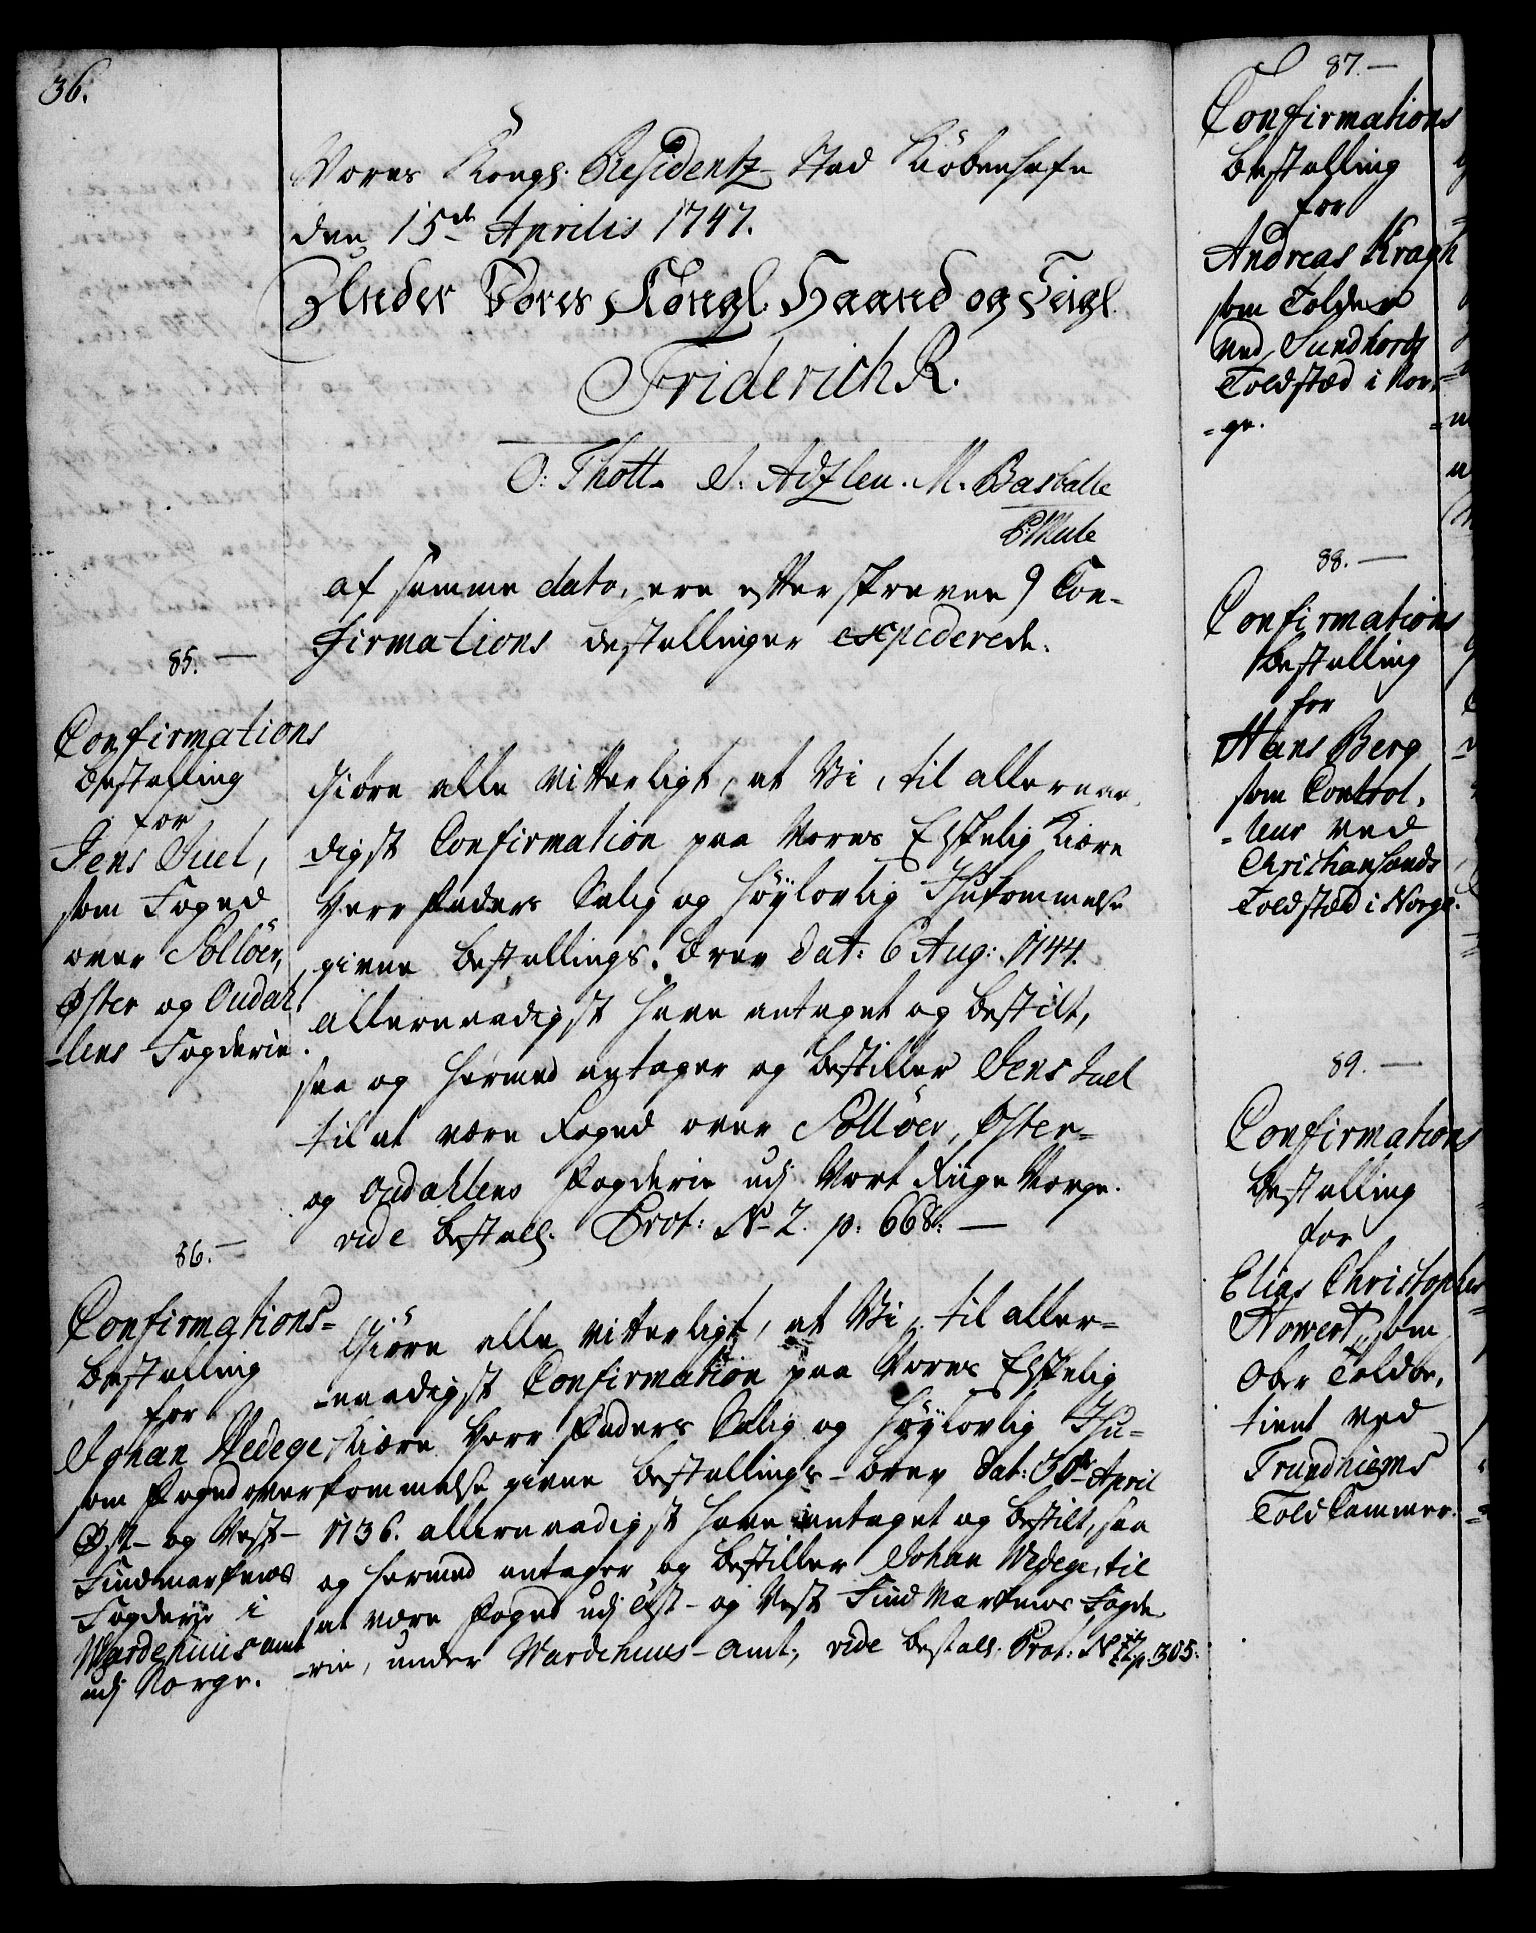 36.
Vores Kongl. Residentz Stad Kiöbenhafn
den 15de Aprilis 1747.
Under Vores Kongl. Haand og Seigl.
Friderich R.
O: Thott. S. Adzlew. M. Basballe
P: Mule
af samme dato, ere efterskrevne 9 Con-
firmations bestallinger expiderede.
85. —
Confirmations
bestalling
for
Jens Juel,
som Foged
over Solløer,
Øster og Oudahl
-lens Fogderie.
Giöre alle vitterligt, at Vi, til allernaa-
digst Confirmation paa Vores Elskelig Kiære
Herr Faders Salig og höylovlig Ihukommelse
givne bestallings-brev dat: 6 Aug: 1744.
allernaadigst have antaget og bestilt,
saa og hermed antager og bestiller Jens Juel
til at være Foged over Solløer, Øster-
og Oudahlens Fogderie udj Vort Riige Norge.
vide bestall. Prot: No 2. p. 668. —
86. —
Confirmations-
bestalling
for
Johan Wedege
som Foged over
Øst- og Vest-
Findmarkens
Fogderie i
Wardehuus amt
udj Norge.
Giöre alle vitterligt, at Vi, til aller-
-naadigst Confirmation paa Vores Elskelig
Kiære Herr Faders Salig og höylovlig Ihu-
kommelse givne bestallings-brev dat: 30te April
1736. allernaadigst have antaget og bestilt, saa
og hermed antager og bestiller Johan Wedege, til
at være Foged udj Øst- og Vest Find Markens Fogde-
-rie, under Wardehuus-amt, vide bestall. Prot: No p. 305.
87. —
Confirmations
bestalling
for
Andreas Kragh
som Tolder
ved Sundhords
Toldstæd i Nor-
-ge.
88. —
Confirmations
bestalling
for
Hans Berg
som Control-
-leur ved
Christiansands
Toldstæd i Norge.
89. —
Confirmations
bestalling
for
Elias Christopher
Nowert, som
Ober Toldbe-
tient ved
Trundhiems
Told Cammer.